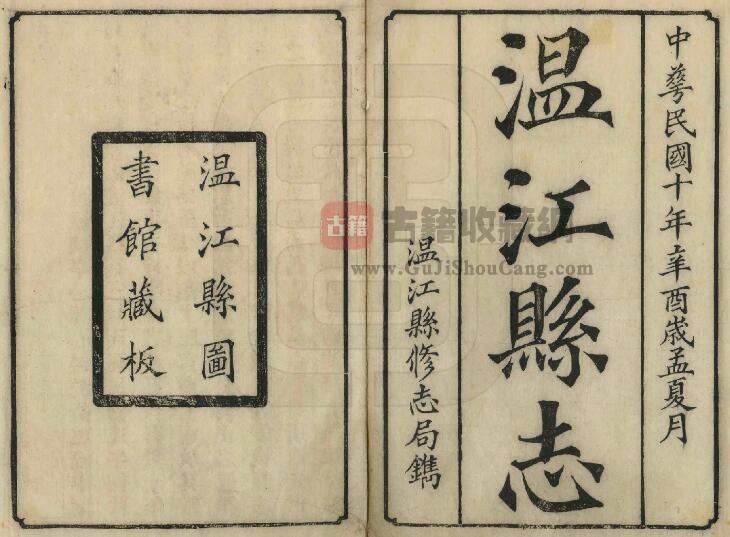 中華民國十年辛酉歲孟夏月
温江縣志
温江縣修志局鐫
温江縣圖
書館藏板
古籍
古籍收藏網
www.GuJiShouCang.com